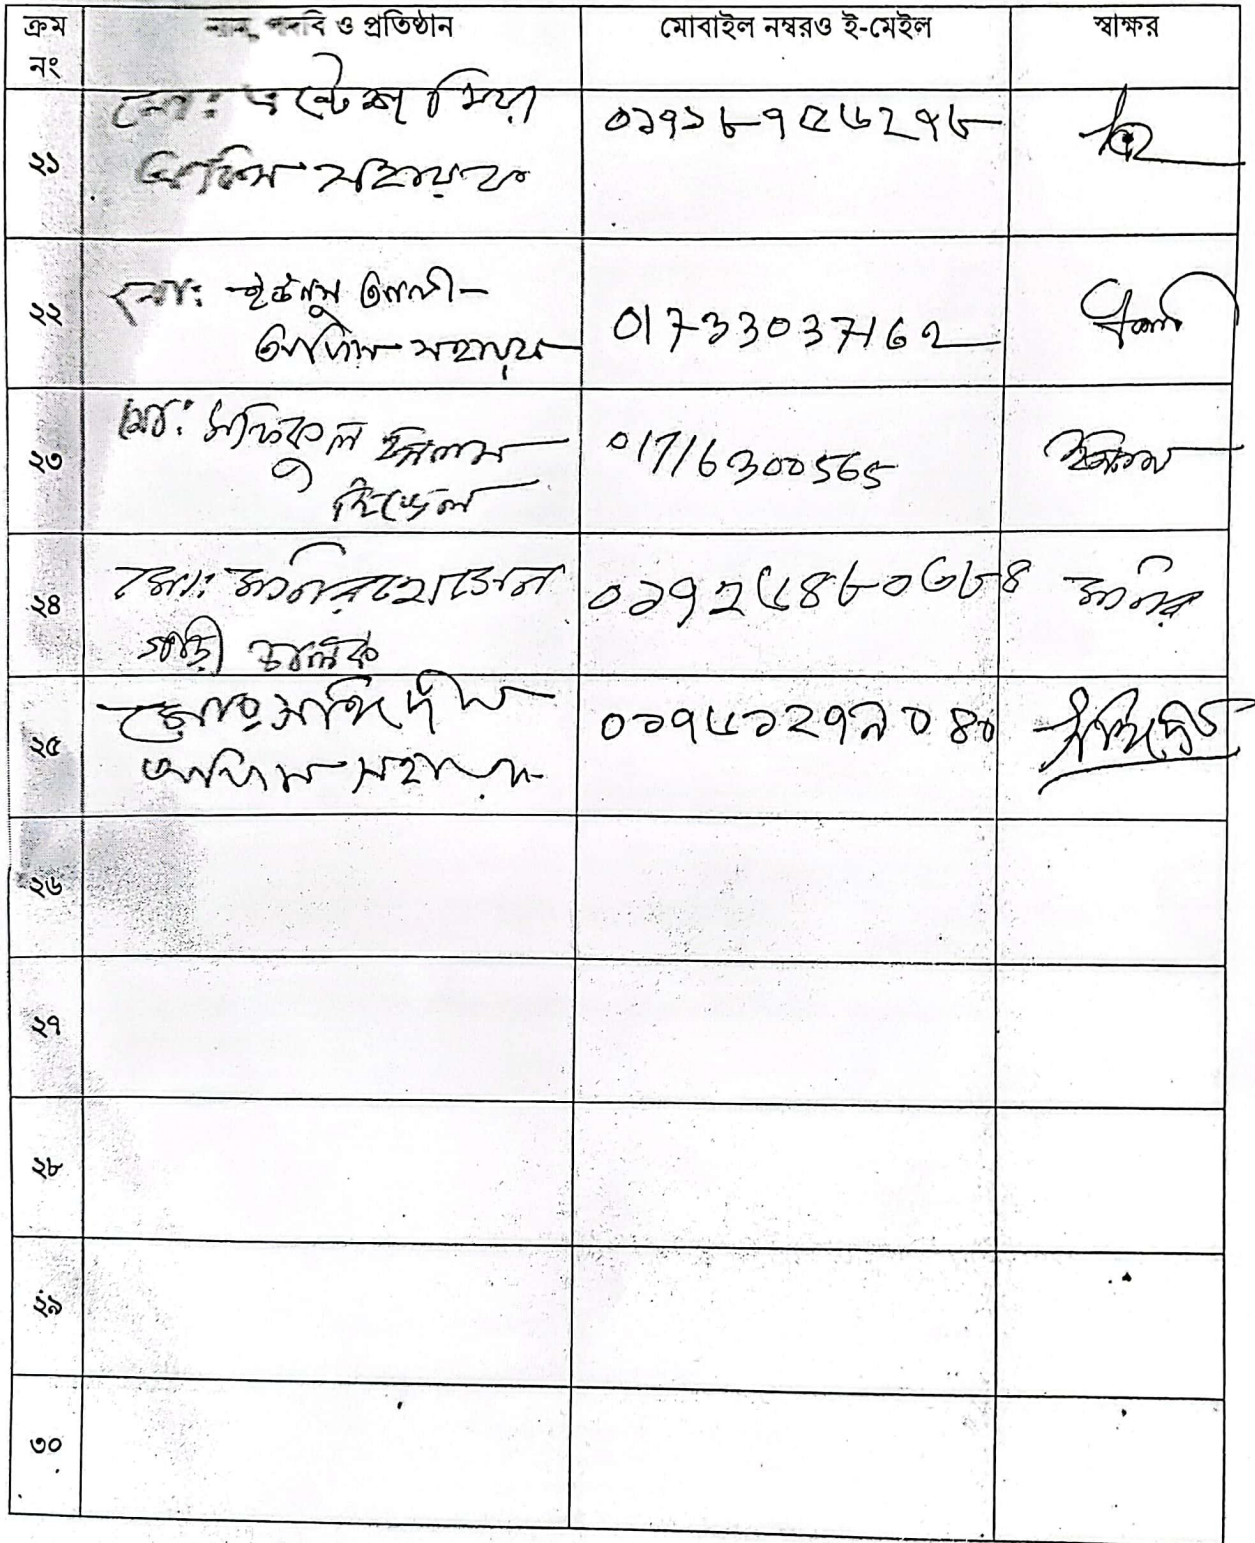 ক্রম নং নাম, পদবি ও প্রতিষ্ঠান মোবাইল নম্বরও ই-মেইল স্বাক্ষর
মো: মিয়া
২১ অফিস সহায়ক ০১৭১৮৭৫৬২৭৮
মো: ইউনুস আলী
২২ অফিস সহায়ক 01733037162
মো: সফিকুল ইসলাম
২৩ 01716300565 ইসলাম
মো: মনির হোসেন
২৪ গাড়ী চালক ০১৭২৫৪৮০৩৮৪ মনির
২৫ অফিস সহায়ক ০১৭৫১২৭৯০৪০
২৬
২৭
২৮
২৯
৩০